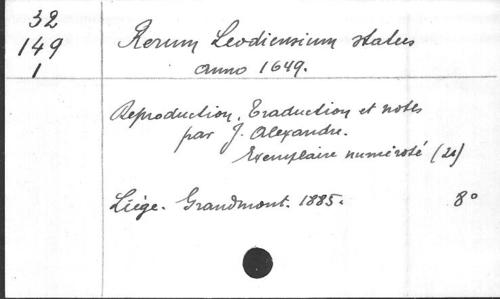 32
149
1
Rerum Leodiensium status
anno 1649.
Reproduction, Traduction et notes
par J. Alexandre.
Exemplaire numéroté (21)
Liège. Grandmont. 1885. 8°